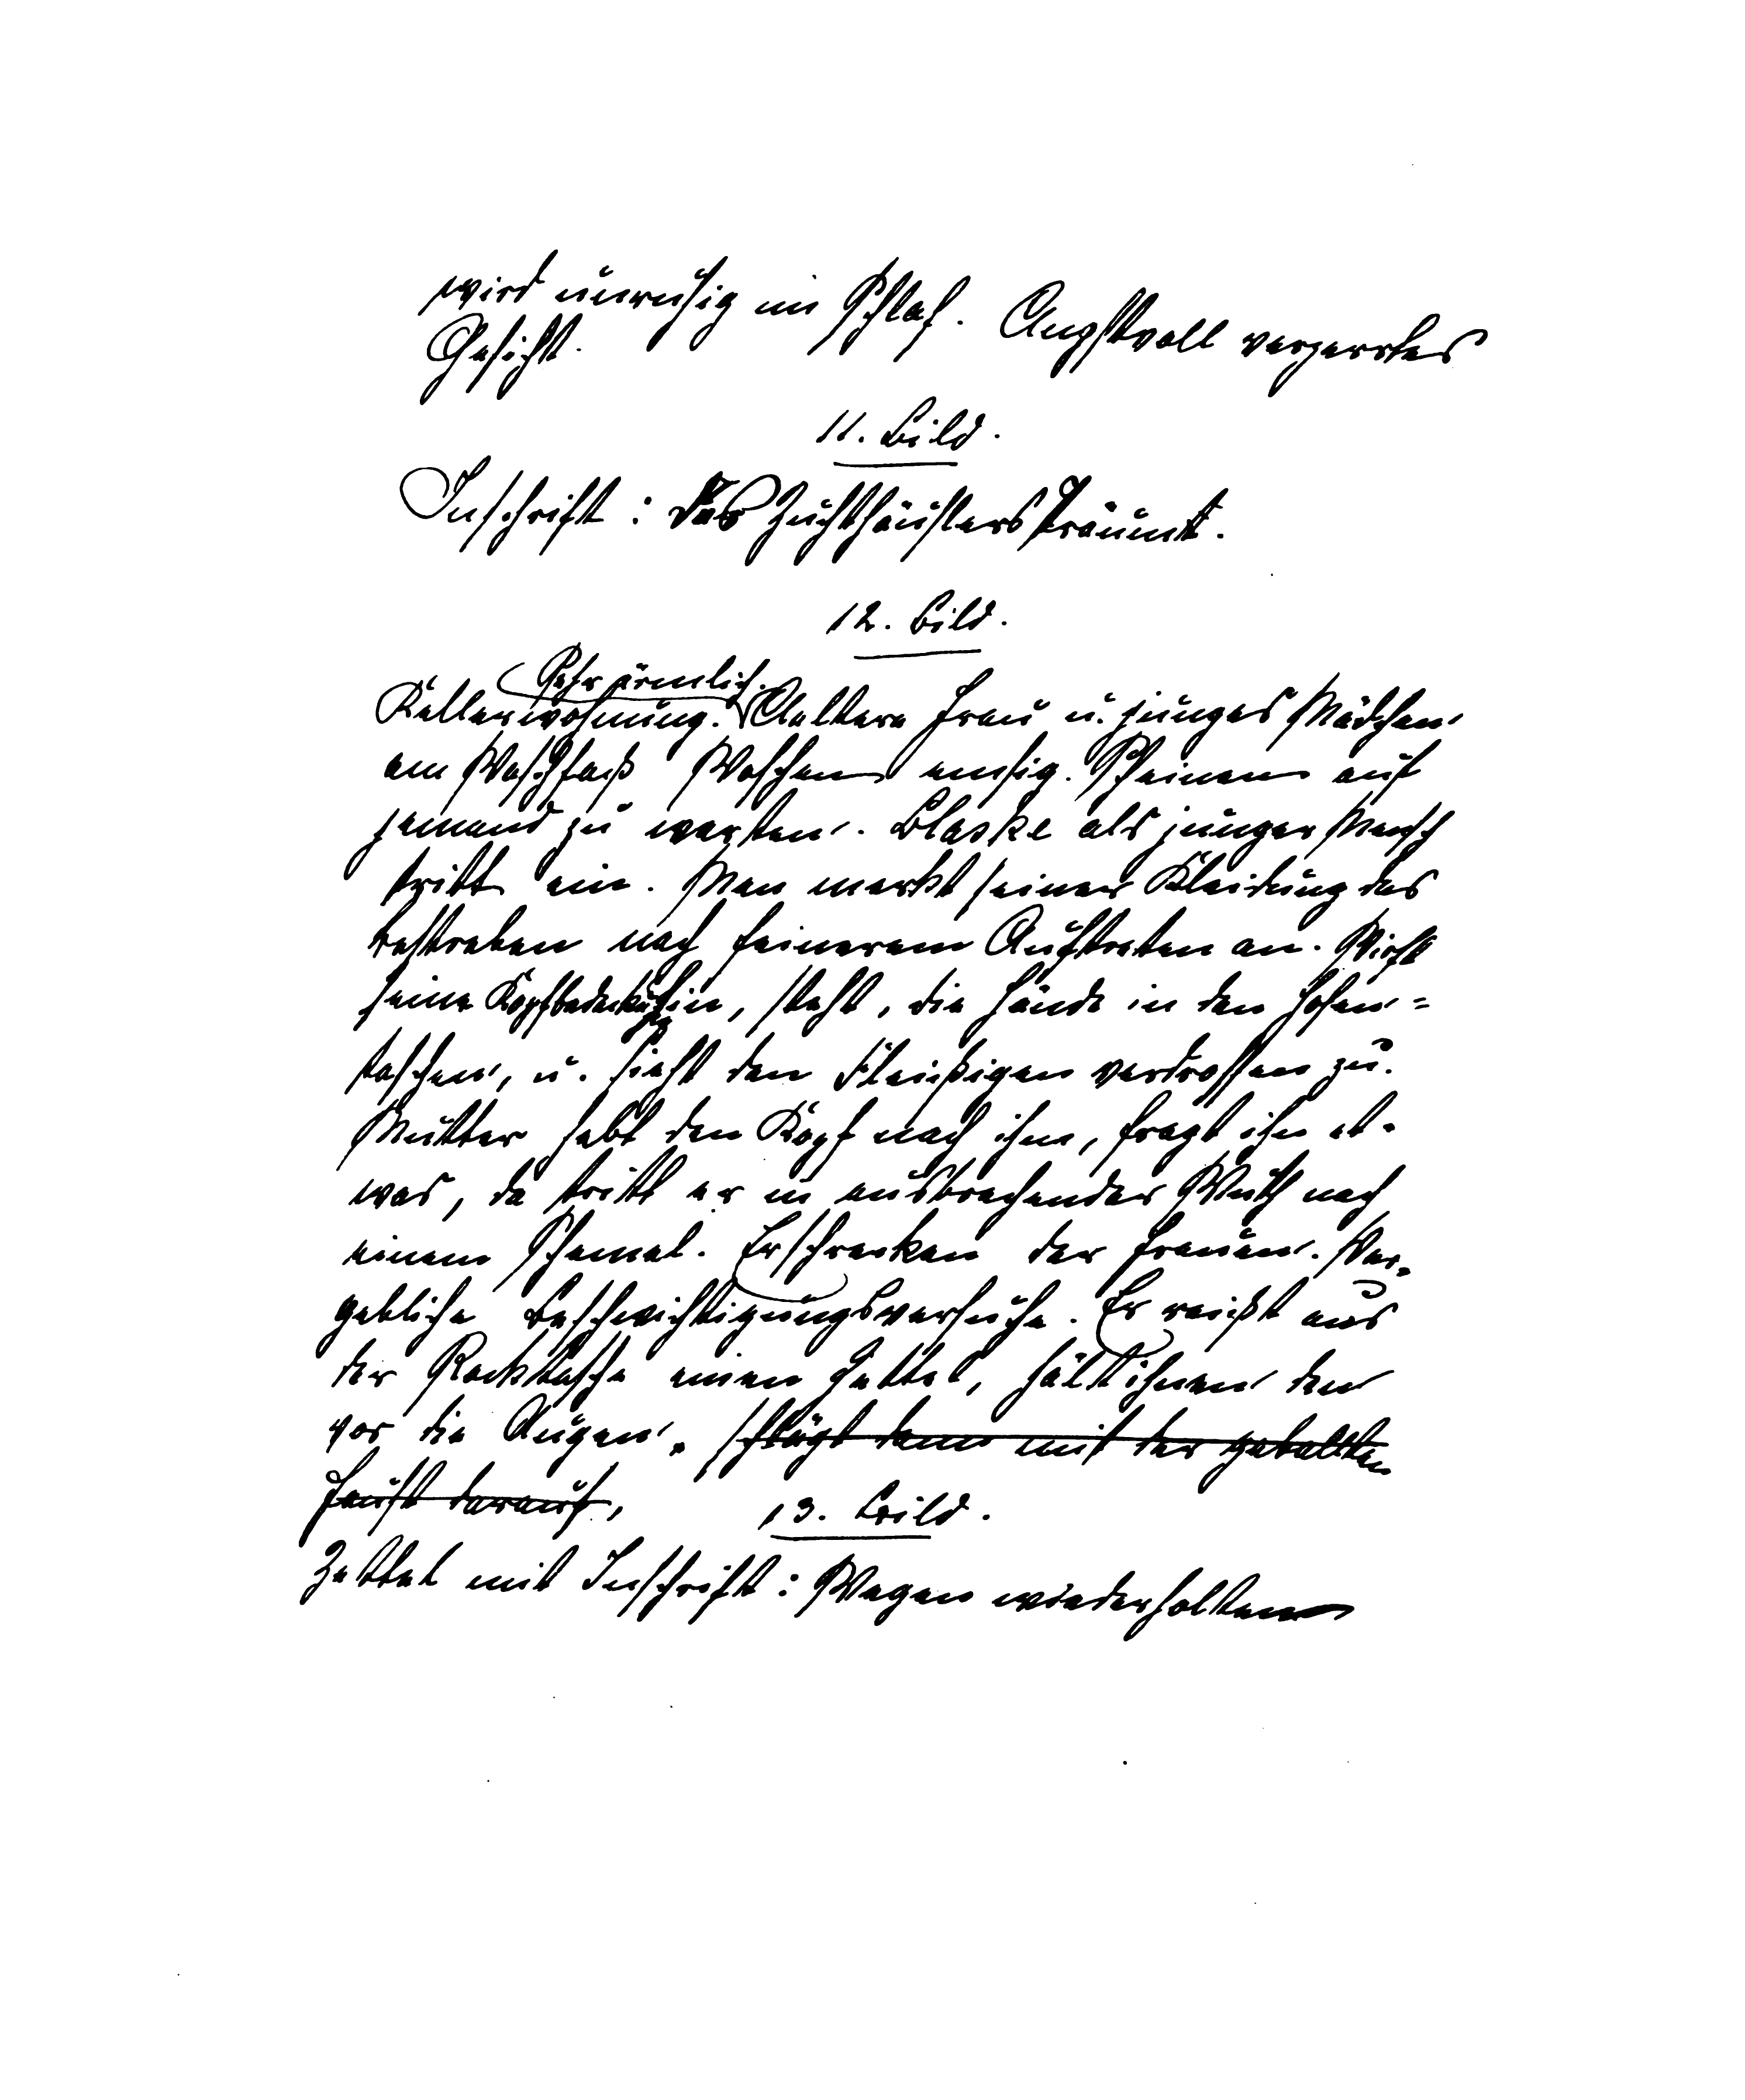 wird unruhig im Schlaf. Angstvoll verzerrtes
Gesicht.
11. Bild.
Inschrift: Des Zuchthäuslers Traum.
12. Bild.
Sehr ärmlich.
Kellerwohnung. Aeltere Frau u. junges Mädchen
am Waschfaß Waschen emsig. Scheinen auf
jemand zu warten. Blaske als junger Mensch
tritt ein. Man merkt seiner Kleidung das
Bestreben nach feinerem Auftreten an. Wirft
seine Kopfbedeckung hin, steht, die Hände in den Hosen=
taschen, u. sieht den Fleißigen verdrossen zu.
Mutter hebt den Kopf nach ihm, fragt ihn et-
was, da tritt er in ausbrechender Wuth nach
einem Schemel. Erschrecken der Frauen. Ver-
gebliche Beschwichtigungsversuche. Er reißt aus
der Rocktasche einen Zettel, hält ihnen den
vor die Augen. schlägt dann mit der geballten
Faust darauf,
13. Bild.
Zettel mit Inschrift: Wegen wiederholten